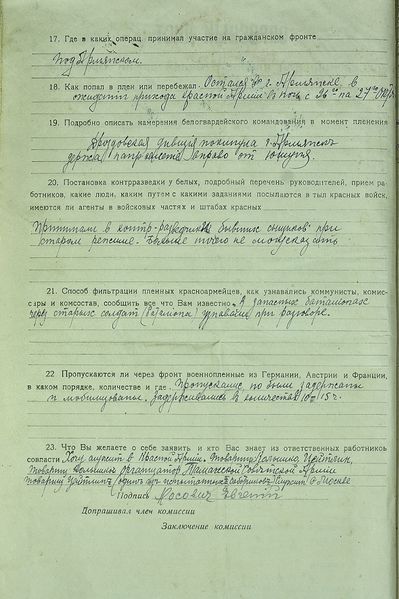 17. Где в каких операц. принимал участие на гражданском фронте
под Армянском.
18. Как попал в плен или перебежал. Остался в г. Армянске в
ожидании прихода красной Армии в ночь с 26 на 27
19. Подробно описать намерения белогвардейского командования в момент пленения
Дроздовская дивизия покинула г. Армянск
держа направление вправо от Юшуня.
20. Постановка контрразведки у белых, подробный перечень руководителей, прием ра-
ботников, какие люди, каким путем с какими заданиями посылаются в тыл красных войск,
имеются ли агенты в войсковых частях и штабах красных
бывших сыщиков при
старом режиме. Больше ничего не могу сказать
21. Способ фильтрации пленных красноармейцев, как узнавались коммунисты, комис-
сары и комсостав, сообщить все что Вам известно. В запасных баталионах
через старых солдат узнавали при разговоре.
22 Пропускаются ли через фронт военнопленные из Германии, Австрии и Франции,
в каком порядке, количестве и где. Пропускались, но были задержаны
и мобилизованы. Задерживались в количестве 10-15 ч.
23. Что Вы желаете о себе заявить и кто Вас знает из ответственных работников
совласти Хочу служить в Красной Армии. Товарищ
товарищ организатор Таманской Армии
товарищ один из в Москве
Подпись Носович Евгений
Допрашивал член комиссии
Заключение комиссии